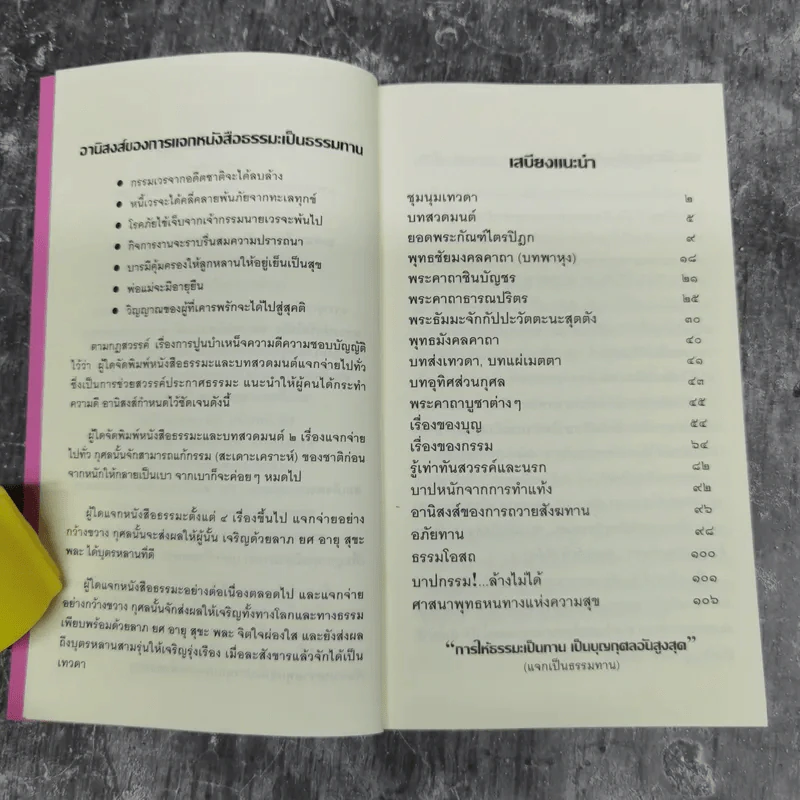 อานิสงส์ของการแจกหนังสือธรรมะเป็นธรรมทาน
● กรรมเวรจากอดีตชาติจะได้ลบล้าง
● หนี้เวรจะได้คลี่คลายพ้นภัยจากทะเลทุกข์
● โรคภัยไข้เจ็บจากเจ้ากรรมนายเวรจะพ้นไป
● กิจการงานจะราบรื่นสมความปรารถนา
● บารมีคุ้มครองให้ลูกหลานให้อยู่เย็นเป็นสุข
● พ่อแม่จะมีอายุยืน
● วิญญาณของผู้ที่เคารพรักจะได้ไปสู่สุคติ
ตามกฎสวรรค์ เรื่องการปูนบำเหน็จความดีความชอบบัญญัติ
ไว้ว่า ผู้ใดจัดพิมพ์หนังสือธรรมะและบทสวดมนต์แจกจ่ายไปทั่ว
ซึ่งเป็นการช่วยสวรรค์ประกาศธรรมะ แนะนำให้ผู้คนได้กระทำ
ความดี อานิสงส์กำหนดไว้ชัดเจนดังนี้
ผู้ใดจัดพิมพ์หนังสือธรรมะและบทสวดมนต์ ๒ เรื่องแจกจ่าย
ไปทั่ว กุศลนั้นจักสามารถแก้กรรม (สะเดาะเคราะห์) ของชาติก่อน
จากหนักให้กลายเป็นเบา จากเบาก็จะค่อยๆ หมดไป
ผู้ใดแจกหนังสือธรรมะตั้งแต่ ๔ เรื่องขึ้นไป แจกจ่ายอย่าง
กว้างขวาง กุศลนั้นจะส่งผลให้ผู้นั้น เจริญด้วยลาภ ยศ อายุ สุขะ
พละ ได้บุตรหลานที่ดี
ผู้ใดแจกหนังสือธรรมะอย่างต่อเนื่องตลอดไป และแจกจ่าย
อย่างกว้างขวาง กุศลนั้นจักส่งผลให้เจริญทั้งทางโลกและทางธรรม
เพียบพร้อมด้วยลาภ ยศ อายุ สุขะ พละ จิตใจผ่องใส และยังส่งผล
ถึงบุตรหลานสามรุ่นให้เจริญรุ่งเรือง เมื่อละสังขารแล้วจักได้เป็น
เทวดา
เสบียงแนะนำ
ชุมนุมเทวดา ๒
บทสวดมนต์ ๕
ยอดพระกัณฑ์ไตรปิฎก ๙
พุทธชัยมงคลคาถา (บทพาหุง) ๑๘
พระคาถาชินบัญชร ๒๑
พระคาถาธารณปริตร ๒๕
พระธัมมะจักกัปปะวัตตะนะสุตตัง ๓๐
พุทธมังคลคาถา ๔๐
บทส่งเทวดา, บทแผ่เมตตา ๔๑
บทอุทิศส่วนกุศล ๔๓
พระคาถาบูชาต่างๆ ๔๕
เรื่องของบุญ ๕๔
เรื่องของกรรม ๖๔
รู้เท่าทันสวรรค์และนรก ๘๒
บาปหนักจากการทำแท้ง ๙๒
อานิสงส์ของการถวายสังฆทาน ๙๖
อภัยทาน ๙๘
ธรรมโอสถ ๑๐๐
บาปกรรม!...ล้างไม่ได้ ๑๐๑
ศาสนาพุทธหนทางแห่งความสุข ๑๐๖
“การให้ธรรมะเป็นทาน เป็นบุญกุศลอันสูงสุด”
(แจกเป็นธรรมทาน)